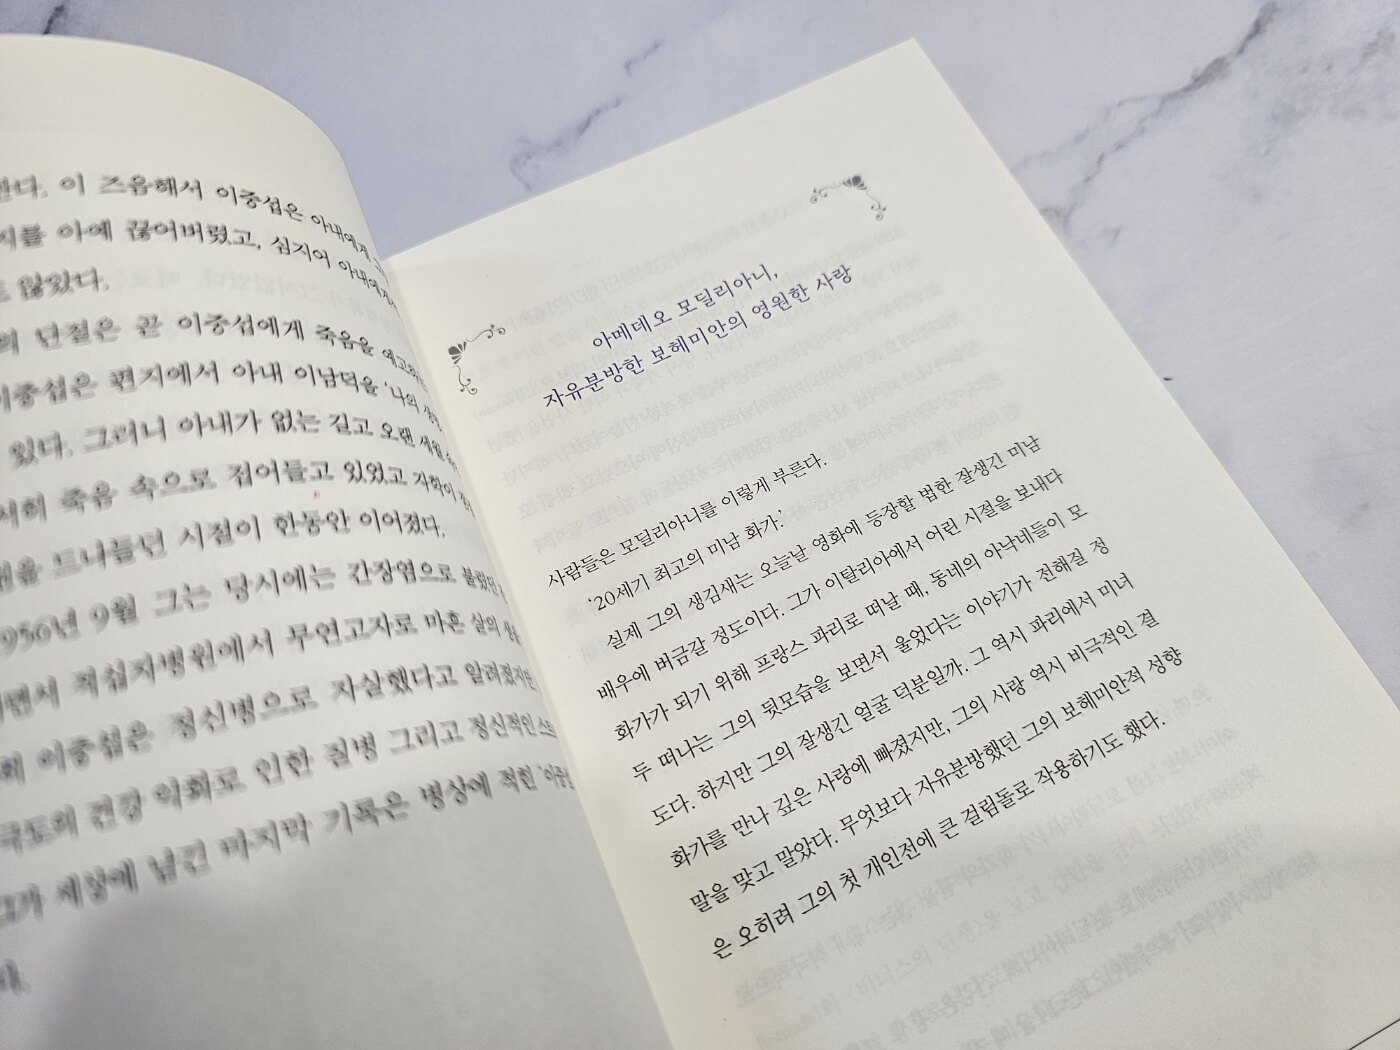 한다. 이 즈음해서 이중섭은 아내에게
지를 아예 끊어버렸고, 심지어 아내에게서
않았다.
의 단절은 곧 이중섭에게 죽음을
이중섭은 편지에서 아내 이남덕을 '나의
있다. 그러니 아내가 없는 길고 오랜 세월
서서히 죽음 속으로 접어들고 있었고 자학이
드나들던 시절이 한동안 이어졌다.
1956년 9월 그는 당시에는 간장염으로 불렸던
적십자병원에서 무연고자로 마흔 살의
이중섭은 정신병으로 자살했다고 알려졌지만
극도의 건강 악화로 인한 질병 그리고 정신적인
그가 세상에 남긴 마지막 기록은 병상에 적힌
아메데오 모딜리아니,
자유분방한 보헤미안의 영원한 사랑
사람들은 모딜리아니를 이렇게 부른다.
'20세기 최고의 미남 화가.'
실제 그의 생김새는 오늘날 영화에 등장할 법한 잘생긴 미남
배우에 버금갈 정도이다. 그가 이탈리아에서 어린 시절을 보내다
화가가 되기 위해 프랑스 파리로 떠날 때, 동네의 아낙네들이 모
두 떠나는 그의 뒷모습을 보면서 울었다는 이야기가 전해질 정
도다. 하지만 그의 잘생긴 얼굴 덕분일까. 그 역시 파리에서 미녀
화가를 만나 깊은 사랑에 빠졌지만, 그의 사랑 역시 비극적인 결
말을 맞고 말았다. 무엇보다 자유분방했던 그의 보헤미안적 성향
은 오히려 그의 첫 개인전에 큰 걸림돌로 작용하기도 했다.